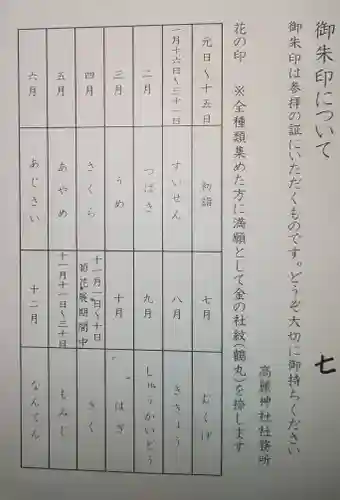 御朱印について
御朱印は参拝の証にいただくものです。どうぞ大切に御持ちください
高麗神社社務所
七
花の印 ※全種類集めた方に満願として金の社紋(鶴丸)を捺します
元日〜十五日 初詣 七月 むくげ
一月十六日〜三十一日 すいせん 八月 ききょう
二月 つばき 九月 しゅうかいどう
三月 うめ 十月 はぎ
四月 さくら 十一月一日〜十日 菊花展期間中 きく
五月 あやめ 十一月十一日〜三十日 もみじ
六月 あじさい 十二月 なんてん